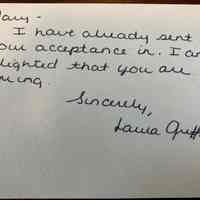 I have already sent
our acceptance in. I am
lighted that you are
ming.
Sincerely,
Laura